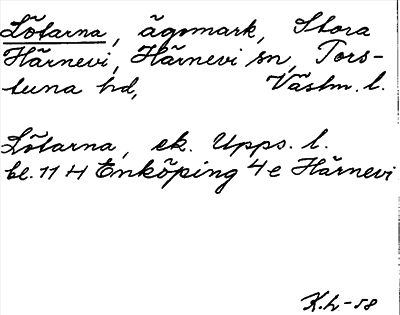 Lötarna, ägomark, Stora
Härnevi, Härnevi sn, Tors-
tuna hd, Västm. l.
Lötarna, ek. Upps. l.
bl. 11 H Enköping 4e Härnevi
K.h-58